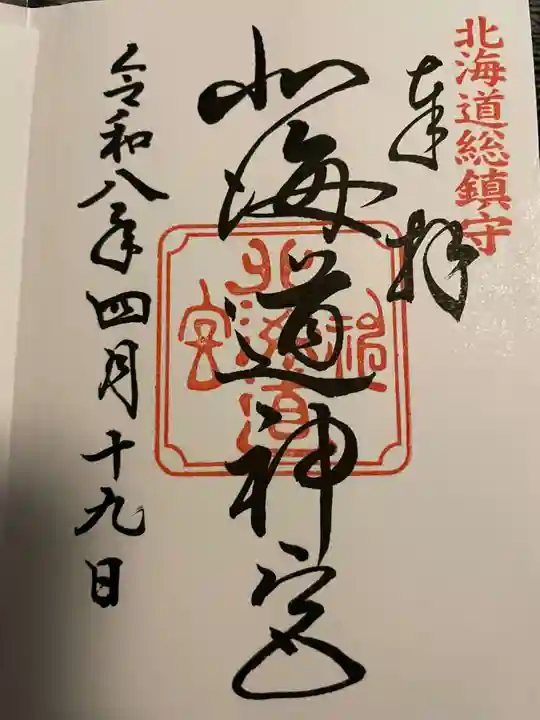 北海道総鎮守
奉拝
北海道神宮
北海道
神
宮
令和八年四月十九日